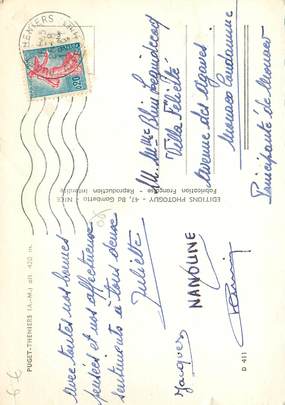 PUGET-THENIERS (A.-M.) alt. 420 m.
avec toutes nos bonnes
pensées et nos affectueux
sentiments à tous deux
Juliette
Jacques
NANOUNE
D 411
EDITIONS PHOTOGUY - 47, Bd Gambetta - NICE
Fabrication Française - Reproduction interdite
THENIERS
0,20
M. Mme Blin
Villa Félicité
Avenue des Agaves
Monaco Condamine
Principauté de Monaco